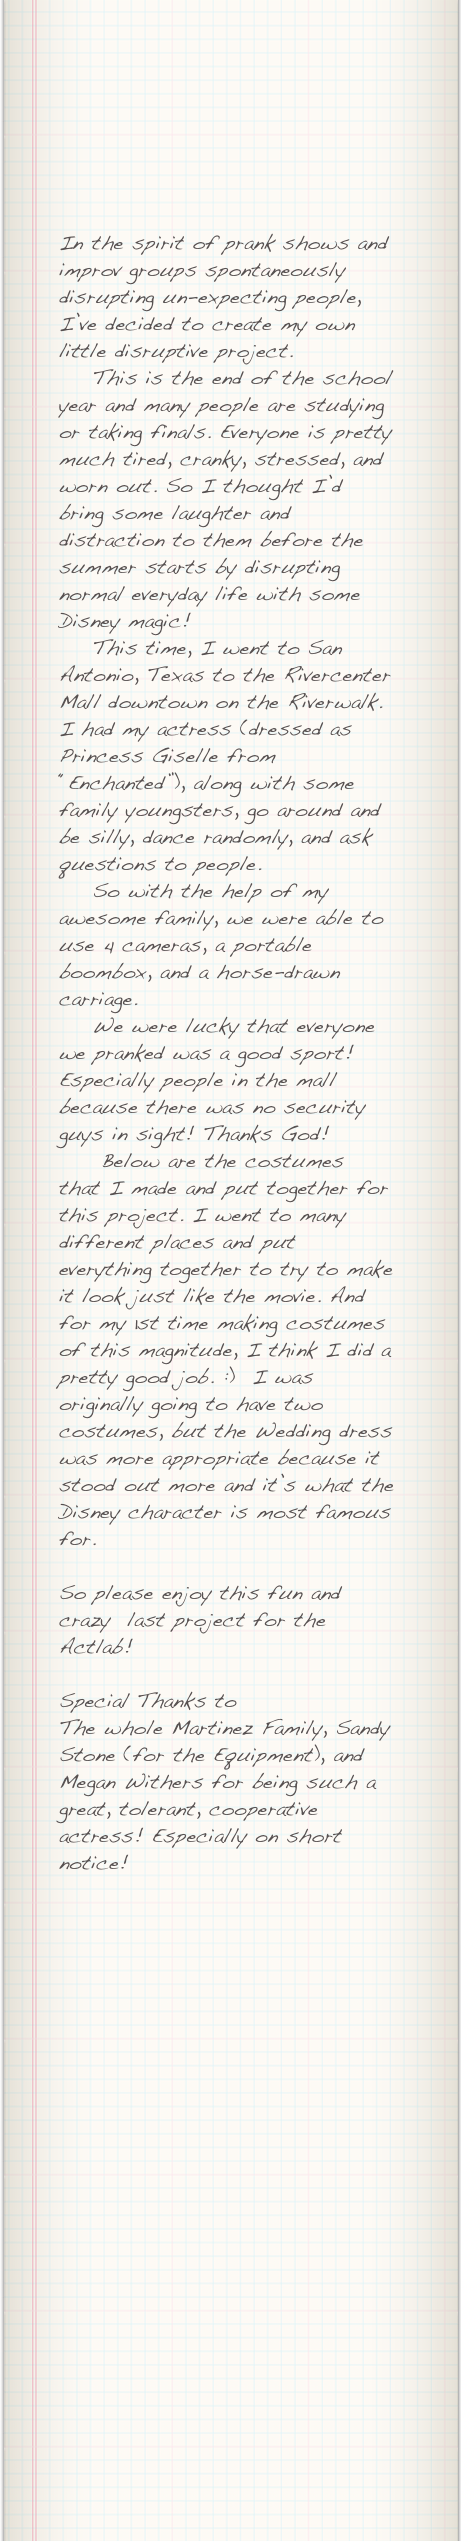 In the spirit of prank shows and
improv groups spontaneously
disrupting un-expecting people,
I've decided to create my own
little disruptive project.
This is the end of the school
year and many people are studying
or taking finals. Everyone is pretty
much tired, cranky, stressed, and
worn out. So I thought I'd
bring some laughter and
distraction to them before the
summer starts by disrupting
normal everyday life with some
Disney magic!
This time, I went to San
Antonio, Texas to the Rivercenter
Mall downtown on the Riverwalk.
I had my actress (dressed as
Princess Giselle from
"Enchanted"), along with some
family youngsters, go around and
be silly, dance randomly, and ask
questions to people.
So with the help of my
awesome family, we were able to
use 4 cameras, a portable
boombox, and a horse-drawn
carriage.
We were lucky that everyone
we pranked was a good sport!
Especially people in the mall
because there was no security
guys in sight! Thanks God!
Below are the costumes
that I made and put together for
this project. I went to many
different places and put
everything together to try to make
it look just like the movie. And
for my 1st time making costumes
of this magnitude, I think I did a
pretty good job. :)  I was
originally going to have two
costumes, but the Wedding dress
was more appropriate because it
stood out more and it's what the
Disney character is most famous
for.

So please enjoy this fun and
crazy  last project for the
Actlab!

Special Thanks to
The whole Martinez Family, Sandy
Stone (for the Equipment), and
Megan Withers for being such a
great, tolerant, cooperative
actress! Especially on short
notice!